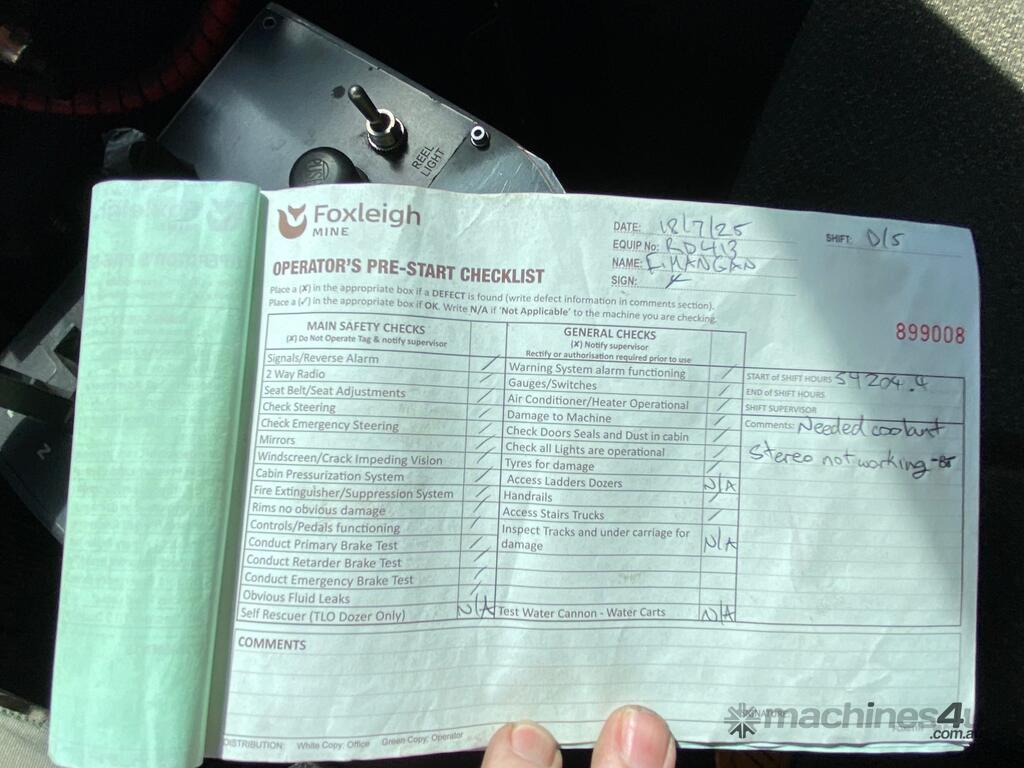 REEL
LIGHT
Foxleigh
MINE
OPERATOR'S PRE-START CHECKLIST
DATE: 18/7/25
EQUIP No: RD413
NAME: E MANGAN
SIGN:
SHIFT: D/S
Place a (✗) in the appropriate box if a DEFECT is found (write defect information in comments section).
Place a (✓) in the appropriate box if OK. Write N/A if 'Not Applicable' to the machine you are checking.
899008
MAIN SAFETY CHECKS
(✗) Do Not Operate Tag & notify supervisor
Signals/Reverse Alarm /
2 Way Radio /
Seat Belt/Seat Adjustments /
Check Steering /
Check Emergency Steering /
Mirrors /
Windscreen/Crack Impeding Vision /
Cabin Pressurization System /
Fire Extinguisher/Suppression System /
Rims no obvious damage /
Controls/Pedals functioning /
Conduct Primary Brake Test /
Conduct Retarder Brake Test /
Conduct Emergency Brake Test /
Obvious Fluid Leaks /
Self Rescuer (TLO Dozer Only) N/A
GENERAL CHECKS
(✗) Notify supervisor
Rectify or authorisation required prior to use
Warning System alarm functioning /
Gauges/Switches /
Air Conditioner/Heater Operational /
Damage to Machine /
Check Doors Seals and Dust in cabin /
Check all Lights are operational /
Tyres for damage /
Access Ladders Dozers N/A
Handrails /
Access Stairs Trucks /
Inspect Tracks and under carriage for
damage N/A
Test Water Cannon - Water Carts N/A
START of SHIFT HOURS 54204.4
END of SHIFT HOURS
SHIFT SUPERVISOR
Comments: Needed coolant
Stereo not working -
COMMENTS
SIGNATURE
DISTRIBUTION: White Copy: Office Green Copy: Operator
machines4u
.com.au
N